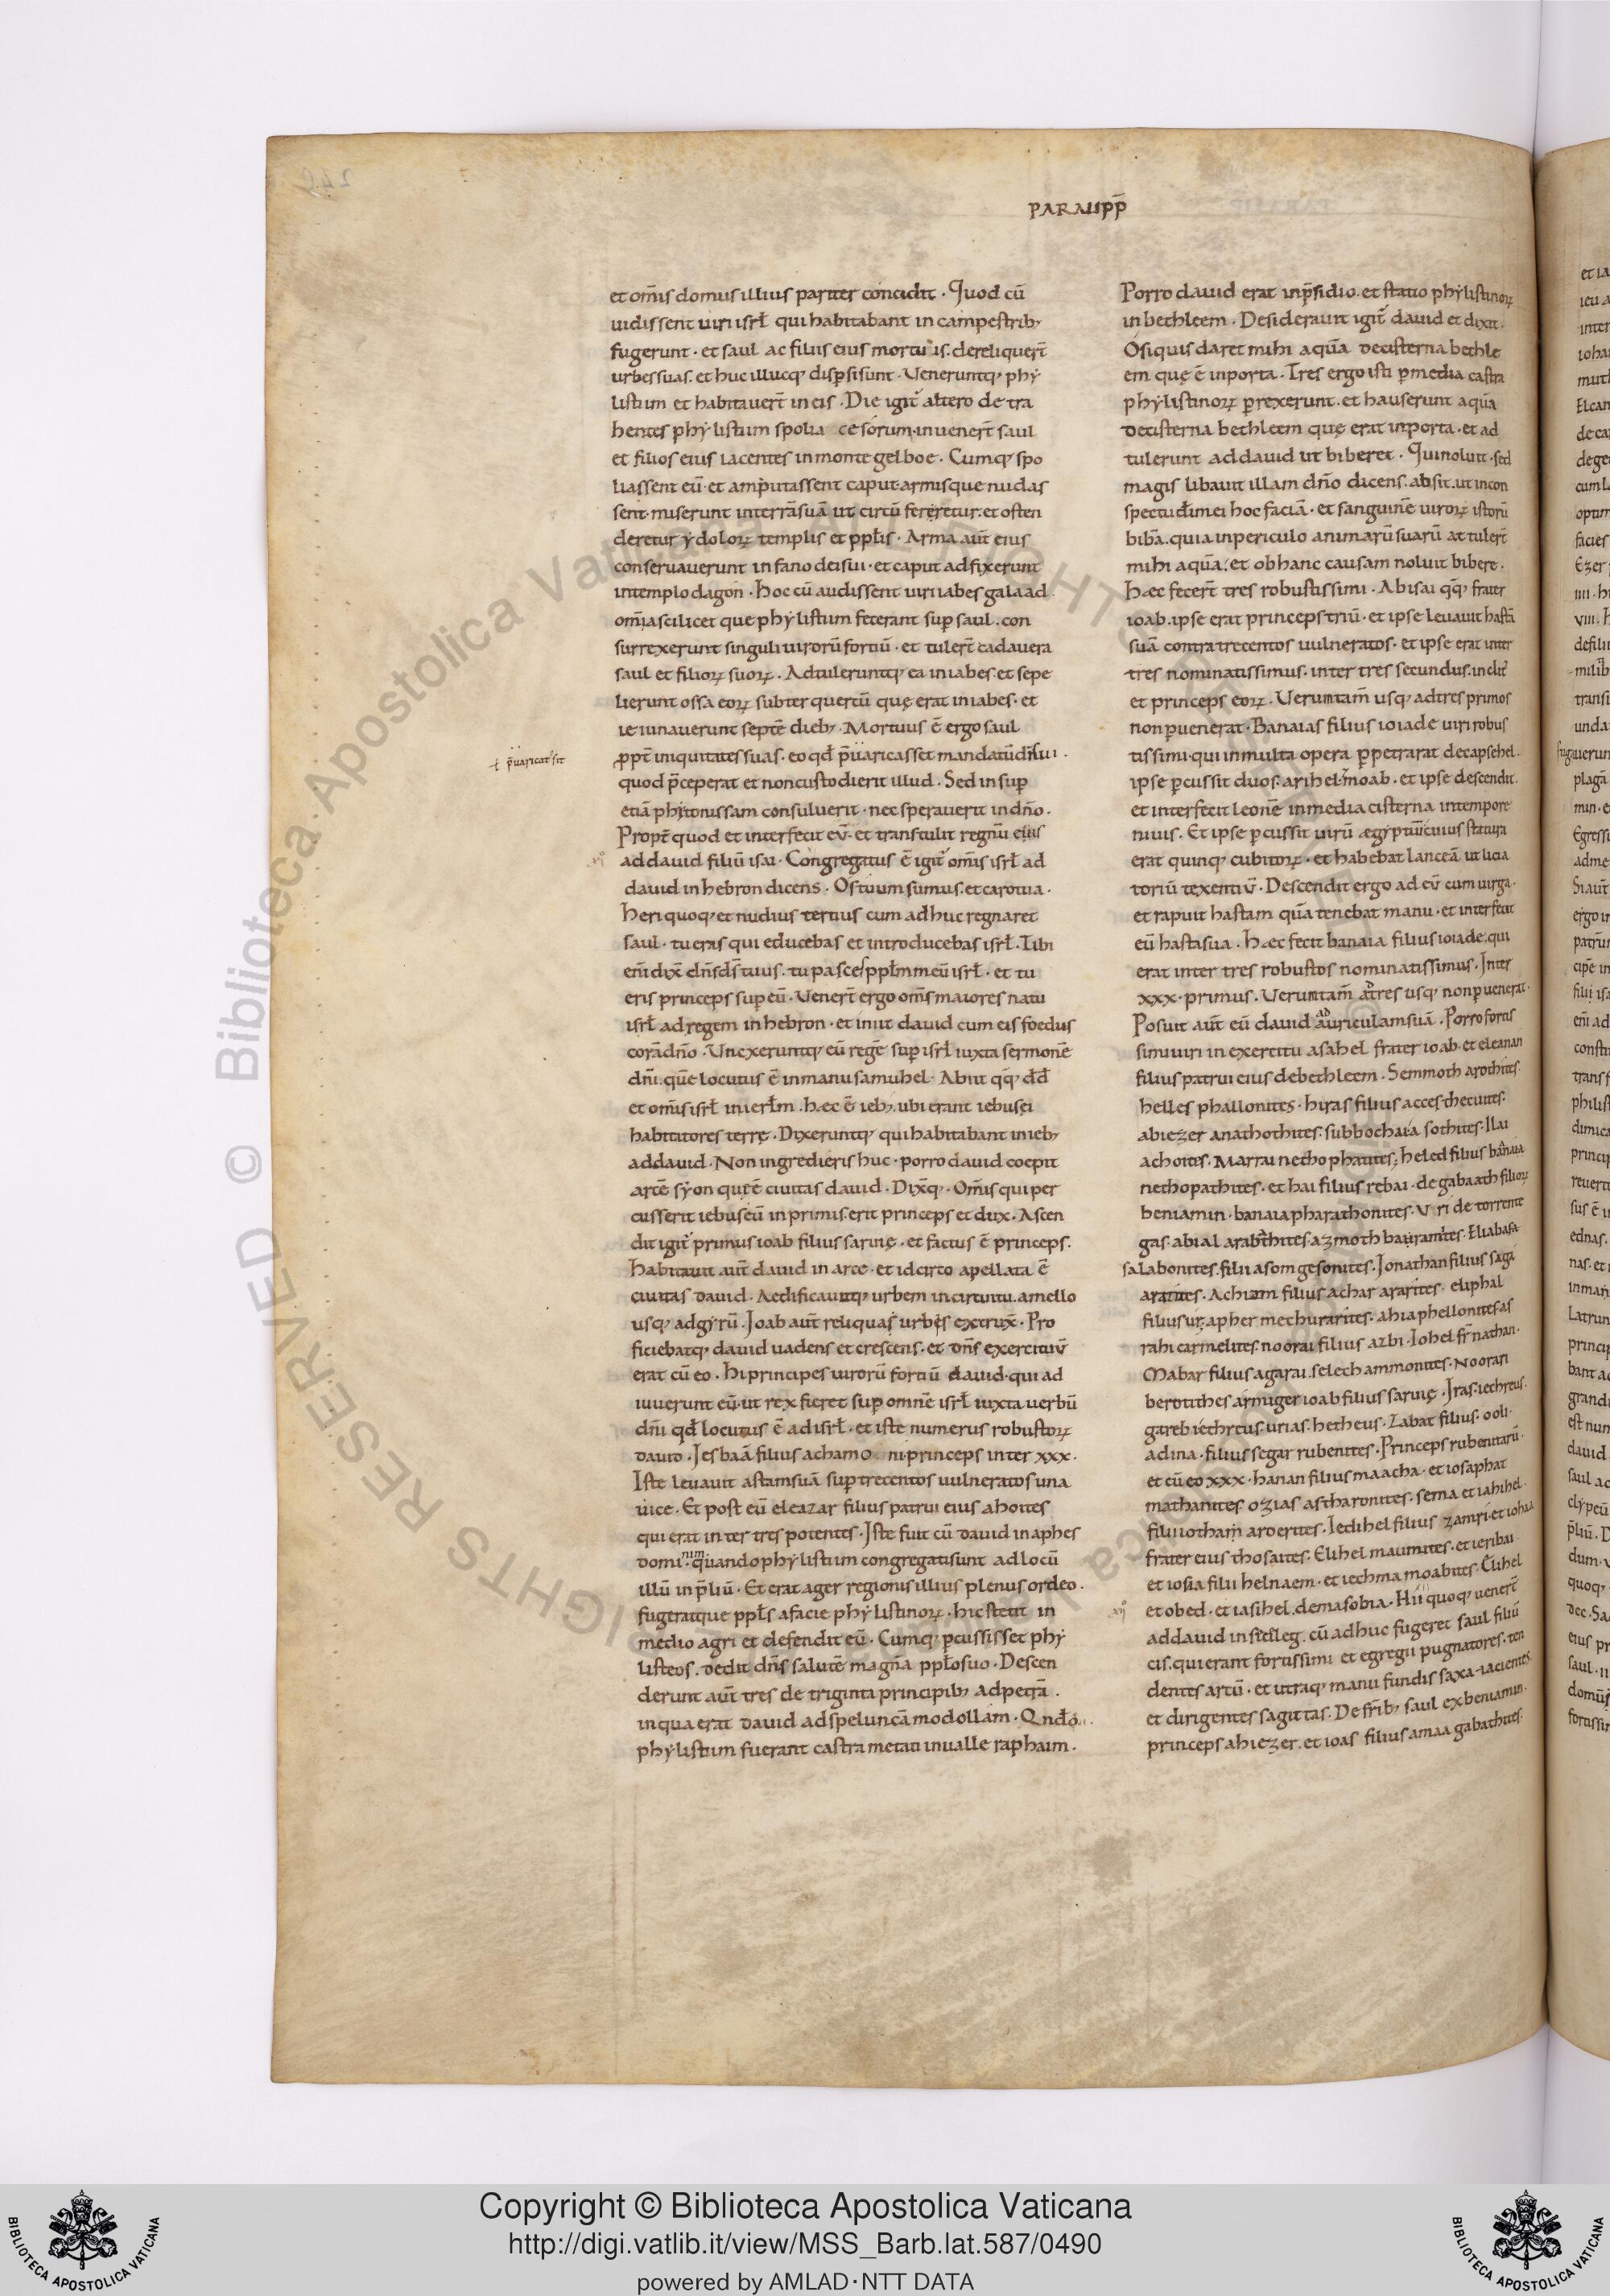 PARALIPP̄
et om̄is domus illius pariter concidit · Quod cū
uidissent uiri isrł qui habitabant in campestrib;
fugerunt · et saul ac filiis eius mortuis. dereliquer̄t
urbes suas. et huc illucq; dispersi sunt · Veneruntq; phẏ
listiim et habitauer̄t in eis · Die igit̄ altero detra
hentes phẏlistiim spolia cesorum. inuener̄t saul
et filios eius iacentes in monte gelboe · Cumq; spo
liassent eū · et amputassent caput. armisque nudas
sent · miserunt in terrā suā ut circū ferretur. et osten
deretur ẏdoloꝝ templis et ppłis · Arma aūt eius
conseruauerunt in fano dei sui · et caput adfixerunt
in templo dagon · Hoc cū audissent uiri iabes galaad ·
om̄ia scilicet que phẏlistiim fecerant suꝑ saul . con
surrexerunt singuli uirorū fortiū · et tuler̄t cadauera
saul et filioꝝ suoꝝ · Adtuleruntq; ea in iabes. et sepe
lierunt ossa eoꝝ subter quercū quę erat in iabes · et
ieiunauerunt septē dieb; · Mortuus ē ergo saul
ꝓpt̄ iniquitates suas · eo qd̄ p̄uaricasset mandatū dn̄i sui ·
ł p̄uaricat' sit
quod p̄ceperat et non custodierit illud · Sed insuꝑ
etiā phitonissam consuluerit · nec sperauerit in dn̄o ·
Propt̄ quod et interfecit eū · et transtulit regnū eius
ad dauid filiū isai · Congregatus ē igit̄ om̄is isrł ad
dauid in hebron dicens · Os tuum sumus. et caro tua ·
Heri quoq; et nudius tertius cum adhuc regnaret
saul · tu eras qui educebas et introducebas isrł · Tibi
eni̅ dix̄ dn̄s d̄s tuus · tu pasces ppłm meū isrł · et tu
eris princeps suꝑ eū · Vener̄t ergo om̄s maiores natu
isrł ad regem in hebron · et iniit dauid cum eis foedus
corā dn̄o · Unxeruntq; eū regē suꝑ isrł iuxta sermonē
dn̄i. quē locutus ē in manu samuhel · Abiit qq; dd̄
et om̄is isrł in ierłm . haec ē ieb; . ubi erant iebusei
habitatores terrę · Dixeruntq; qui habitabant in ieb;
ad dauid · Non ingredieris huc · porro dauid coepit
arcē sẏon que ē ciuitas dauid · Dix̄q; · Om̄is qui per
cusserit iebuseū in primis. erit princeps et dux · Ascen
dit igit̄ primus ioab filius saruię · et factus ē princeps ·
Habitauit aūt dauid in arce · et idcirco apellata ē
ciuitas dauid · Aedificauitq; urbem in circuitu. a mello
usq; ad gẏrū · Ioab aūt reliquas urbis extrux̄ · Pro
ficiebatq; dauid uadens et crescens · et dn̄s exercituū
erat cū eo · Hi principes uirorū fortiū dauid · qui ad
iuuerunt eū · ut rex fieret suꝑ omnē isrł iuxta uerbū
dn̄i qd̄ locutus ē ad isrł · et iste numerus robustoꝝ
dauid · Iesbaā filius achamoni · princeps inter xxx ·
Iste leuauit astam suā suꝑ trecentos uulneratos una
uice · Et post eū eleazar filius patrui eius ahoites
qui erat inter tres potentes · Iste fuit cū dauid in aphes
domini · quando phẏlistiim congregati sunt ad locū
illū in p̄liū · Et erat ager regionis illius plenus ordeo ·
fugeratque ppłs a facie phẏlistinoꝝ · hic stetit in
medio agri et defendit eū · Cumq; ꝑcussisset phẏ
listeos . dedit dn̄s salutē magnā ppło suo · Descen
derunt aūt tres de triginta principib; ad petrā ·
in qua erat dauid ad speluncā modollam · Qn̄do
phẏlistiim fuerant castra metati in ualle raphaim ·
Porro dauid erat in p̄sidio · et statio phẏlistinoꝝ
in bethleem · Desiderauit igit̄ dauid et dixit ·
O siquis daret mihi aquā de cisterna bethle
em quę ē in porta · Tres ergo isti ꝑ media castra
phẏlistinoꝝ ꝑrexerunt . et hauserunt aquā
de cisterna bethleem quę erat in porta · et ad
tulerunt ad dauid ut biberet · Qui noluit · sed
magis libauit illam dn̄o dicens. absit. ut in con
spectu d̄i mei hoc faciā · et sanguinē uiroꝝ istorū
bibā. quia in periculo animarū suarū attuler̄t
mihi aquā · et ob hanc causam noluit bibere ·
Haec fecer̄t tres robustissimi · Abisai qq; frater
ioab. ipse erat princeps triū · et ipse leuauit hastā
suā contra trecentos uulneratos · et ipse erat inter
tres nominatissimus · inter tres secundus. inclit'
et princeps eoꝝ · Veruntam̄ usq; ad tres primos
non ꝑuenerat · Banaias filius ioiade uiri robus
tissimi · qui multa opera ꝑpetrarat de capsehel ·
ipse ꝑcussit duos. arihel moab · et ipse descendit.
et interfecit leonē in media cisterna in tempore
niuis · Et ipse ꝑcussit uirū aegẏptiū cuius statura
erat quinq; cubitoꝝ · et habebat lanceā ut licia
toriū texentiū · Descendit ergo ad eū cum uirga ·
et rapuit hastam quā tenebat manu · et interfecit
eū hasta sua · Haec fecit banaia filius ioiade. qui
erat inter tres robustos nominatissimus · Inter
xxx · primus · Veruntam̄ ad tres usq; non ꝑuenerat ·
Posuit aūt eū dauid ad auriculam suā · Porro fortis
simi uiri in exercitu asahel frater ioab · et eleanan
filius patrui eius de bethleem · Semmoth arothites ·
helles phallonites · hiras filius acces thecuites ·
abiezer anathothites · subbochaia sothites · Ilai
achoites · Marrai nethophatites · heled filius banaia
nethopathites · et hai filius rebai · de gabaath filioꝝ
beniamin · banaia pharathonites · Uri de torrente
gas · abial arabathites · azmoth bauramites · Eliabasa
salabonites. filii asom gesonites · Ionathan filius saga
ararites · Achiam filius achar ararites · eliphal
filius ur. apher mechurarites · ahia phellonites. as
rahi carmelites. noorai filius azbi · Iohel fr̄ nathan ·
Mabar filius agarai. selech ammonites · Noorari
berotithes armiger ioab filius saruię · Iras. iethreus ·
gareb iethreus. urias · hetheus · Zabat filius · ooli ·
adina · filius segar rubenites · Princeps rubenitarū ·
et cū eo xxx · hanan filius maacha · et iosaphat
mathanites · ozias astharonites · sema et iahihel ·
filii iotham aroerites · Iedihel filius zamri · et iohaa
frater eius thosaites · Elihel maumites · et ieribai
et iosia filii helnaem · et iechma moabites · Elihel
et obed · et iasihel. de masobia · Hii quoq; uener̄t
ad dauid in siceleg · cū adhuc fugeret saul filiū
cis. qui erant fortissimi et egregii pugnatores · ten
dentes arcū · et utraq; manu fundis saxa iacientes
et dirigentes sagittas · De fr̄ib; saul ex beniamin ·
princeps ahiezer . et ioas filius amaa gabathites ·
© Biblioteca Apostolica Vaticana. ALL RIGHTS RESERVED
Copyright © Biblioteca Apostolica Vaticana
http://digi.vatlib.it/view/MSS_Barb.lat.587/0490
powered by AMLAD·NTT DATA
BIBLIOTECA APOSTOLICA VATICANA
BIBLIOTECA APOSTOLICA VATICANA